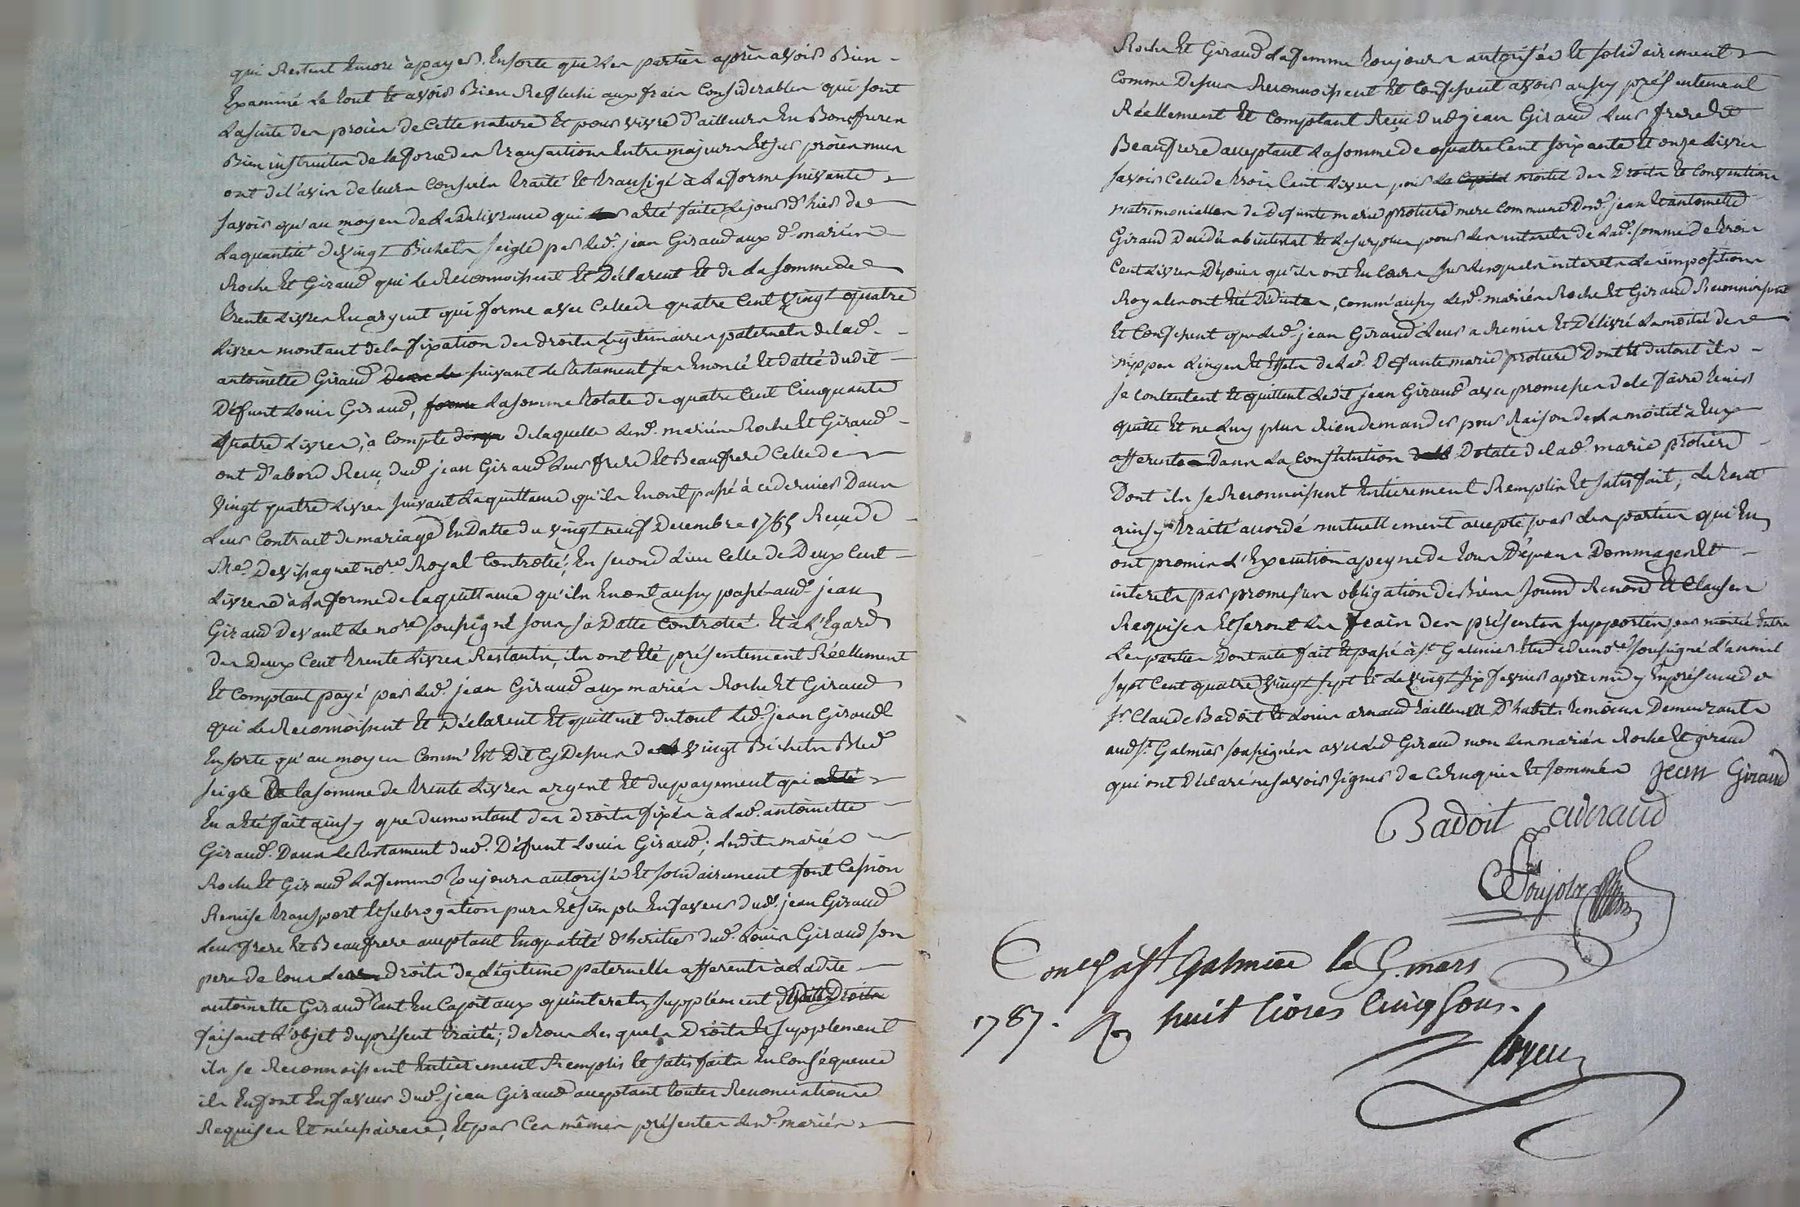 qui Restent Encore à payer. Ensorte que Les parties après avoir Bien
Examiné Le tout Et avoir Bien Reflechi aux frais Considerables qui sont
La suite des procès de Cette nature Et pour vivre d'ailleurs En Bons freres
Bien instruites de la force des transactions Entre majeurs Et sur procès mus
ont de l'avis de leurs Conseils traité Et transigé à La forme suivante
savoir qu'au moyen de La Delivrance qui a été faite Le jour d'hier de
La quantité de vingt Bichets seigle par Led. jean Giraud aux d. mariés
Roche Et Giraud qui Le Reconnoissent Et Déclarent Et de La somme de
trente Livres En argent qui forme avec Celle de quatre Cent vingt quatre
Livres montant de la fixation des droits Légitimaires paternels de lad.
antoinette Giraud suivant Le testament sus Enoncé Et datté dudit
Défunt Louis Giraud, La somme totale de quatre Cent Cinquante
quatre Livres, à Compte de laquelle Lesd. mariés Roche Et Giraud
ont d'abord Reçu dud. jean Giraud Leur frere Et Beaufrere Celle de
vingt quatre Livres suivant La quittance qu'ils En ont passé à ce dernier Dans
Leur Contract de mariage En Datte du vingt neuf Decembre 1785 Recu de
Me. Devissaguet nore. Royal Controllé; En second Lieu Celle de Deux Cent
Livres à La forme de la quittance qu'ils En ont aussy passé aud. jean
Giraud Devant Le nore. soussigné sous sa Datte Controllé. Et à L'Egard
des Deux Cent trente Livres Restants, ils ont Eté présentement Réellement
Et Comptant payé par Led. jean Giraud aux mariés Roche Et Giraud
qui Le Reconnoissent Et Déclarent Et quittent du tout Led. jean Giraud
Ensorte qu'au moyen Comm'Est Dit Cy Dessus de vingt Bichets Bled
seigle De La somme de trente Livres argent Et du payement qui
En a été fait ainsy que du montant des droits fixés à Lad. antoinette
Giraud. Dans Le testament dud. Défunt Louis Giraud; Lesdits mariés
Roche Et Giraud La femme toujours autorisée Et solidairement font Cession
Remise transport Et subrogation pure Et simple En faveur dud. jean Giraud
Leur frere Et Beaufrere acceptant En qualité d'héritier dud. Louis Giraud son
pere de tous Les droits de Légitime paternelle afferents à Ladite
antoinette Giraud tant En Capitaux qu'interets, supplément Droits
faisant L'objet du présent traité; de tous Lesquels Droits Et supplement
ils se Reconnoissent Entièrement Remplis Et satisfaits En Conséquence
ils En font En faveur dud. jean Giraud acceptant toutes Renonciations
Requises Et nécessaires, Et par Ces mêmes présentes Lesd. mariés
Roche Et Giraud La femme toujours autorisée Et solidairement
Comme Dessus Reconnoissent Et Confessent avoir aussy présentement
Réellement Et Comptant Reçu Dud. jean Giraud Leur frere Et
Beaufrere acceptant La somme de quatre Cent soixante Et onze Livres
savoir Celle de trois Cent Livres pour La moitié des Droits Et Conventions
matrimoniales de Defunte marie protiere mere Commune Desd. jean Et antoinette
Giraud Decedée abintestat Et Le surplus pour Les interets de Lad. somme de trois
Cent Livres Depuis qu'ils ont Eu Cours sur Lesquels interets Les impositions
Royales ont été Déduites, Comm'aussy Lesd. mariés Roche Et Giraud Reconnoissent
Et Confessent que Led. jean Giraud Leur a Remis Et Délivré La moitié des
nippes Linges Et Effets de Lad. Defunte marie protiere Dont Et du tout ils
se Contentent Et quittent Ledit jean Giraud avec promesse de Le faire tenir
quitte Et ne Luy plus Rien demander pour Raison de La moitié à Eux
afferente Dans La Constitution Dotale de Lad. marie protiere
Dont ils se Reconnoissent Entierement Remplis Et satisfait, Le tout
ainsy traité accordé mutuellement accepté par Les parties qui En
ont promis L'Execution à peyne de tous Dépens Dommages Et
interets par promesse obligation de Biens soumis Renoncé Et Clauses
Requises Et seront Les frais des présentes supportés par moitié Entre
Les parties Dont acte fait Et passé à St. Galmier Etude du nore. soussigné L'an mil
sept Cent quatre vingt sept Et Le vingt six fevrier après midy En présence de
sr. Claude Badoit Et Louis arnaud tailleur D'habits temoins Demeurants
aud. St. Galmier soussignés avec Led. Giraud non Les mariés Roche Et Giraud
qui ont Déclaré ne savoir signer de Ce Enquis Et sommés jean Giraud
Badoit
Conté à St Galmier le 6. mars
1787. Rç huit livres cinq sous.